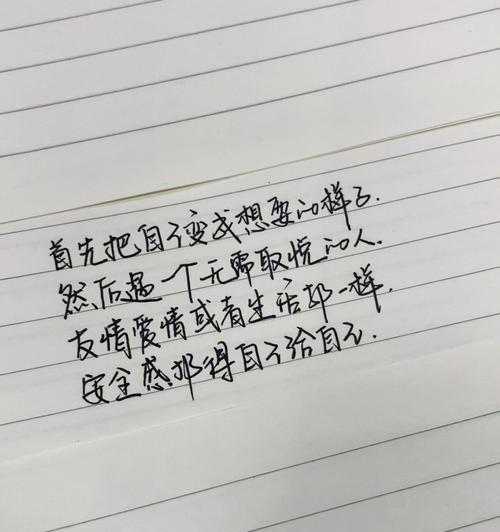 首先把自己变成想要的样子.
然后遇一个无需取悦的人.
友情爱情或者生活都一样.
安全感都得自己给自己.